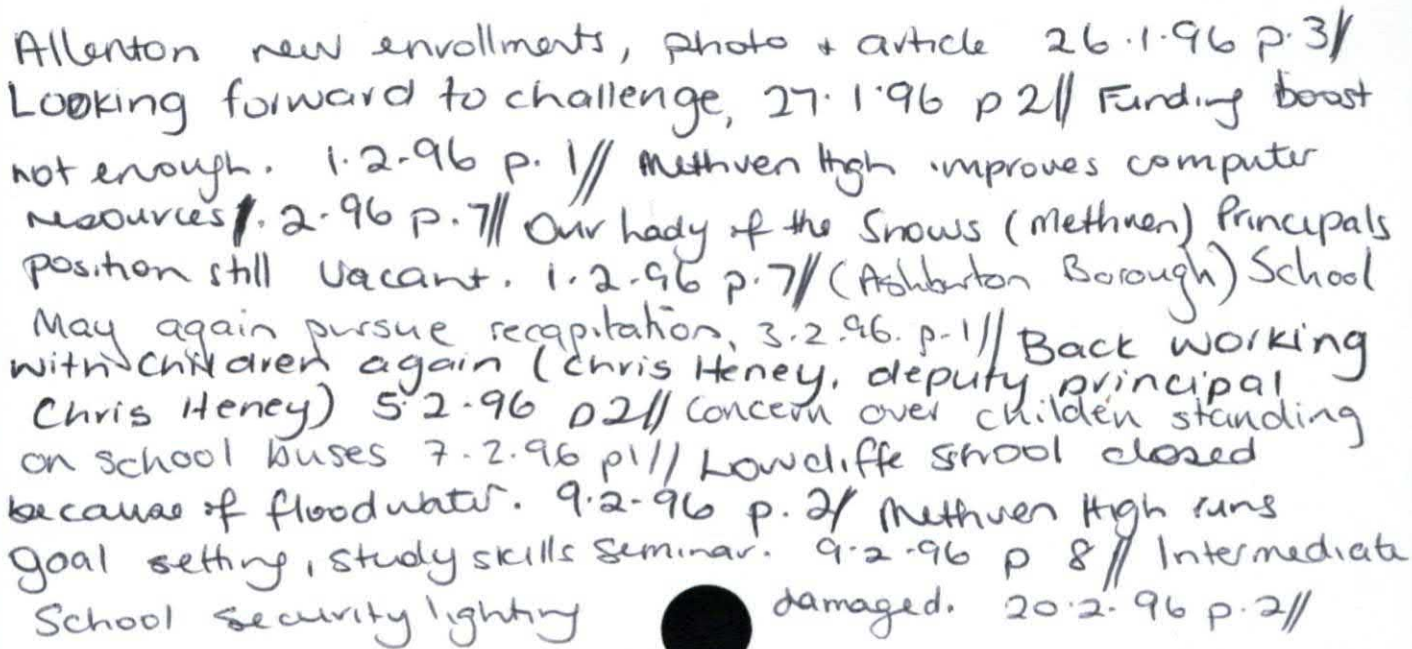 Allenton new enrollments, photo + article 26.1.96 p.3//
Looking forward to challenge, 27.1.96 p 2// Funding boost
not enough. 1.2.96 p. 1// Methven High improves computer
resources 1.2.96 p.7// Our Lady of the Snows (Methven) Principals
position still vacant. 1.2.96 p.7// (Ashburton Borough) School
May again pursue recapitation, 3.2.96. p.1// Back working
with children again (Chris Heney, deputy principal
Chris Heney) 5.2.96 p2// Concern over childen standing
on school buses 7.2.96 p1// Lowcliffe school closed
because of floodwater. 9.2.96 p. 2/ Methven High runs
goal setting, study skills seminar. 9.2.96 p 8// Intermediate
School security lighting damaged. 20.2.96 p.2//